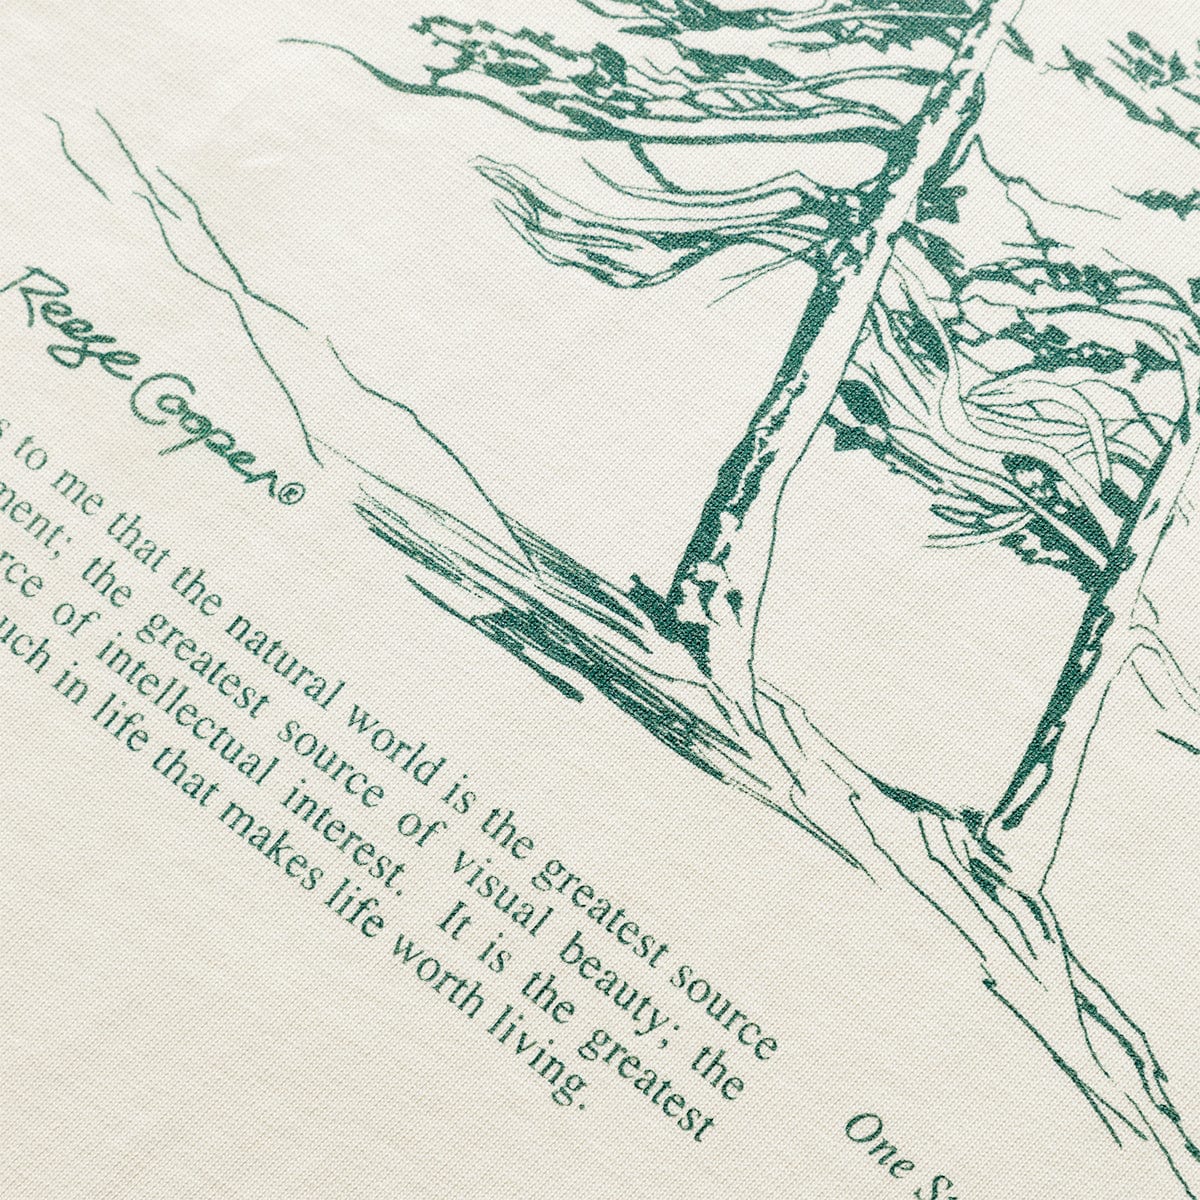 Reese Cooper®
s to me that the natural world is the greatest source
ment; the greatest source of visual beauty; the
rce of intellectual interest. It is the greatest
uch in life that makes life worth living.
One S